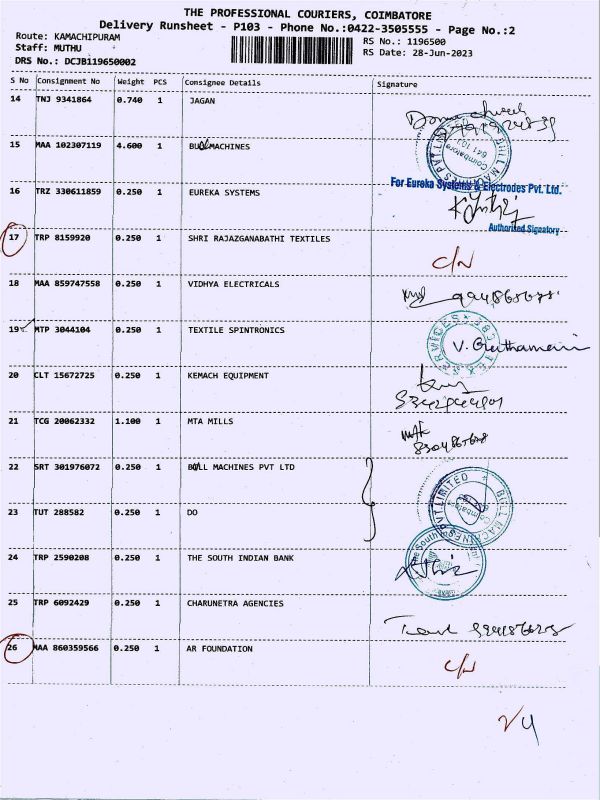 THE PROFESSIONAL COURIERS, COIMBATORE
Delivery Runsheet - P103 - Phone No.:0422-3505555 - Page No.:2
Route: KAMACHIPURAM
Staff: MUTHU
DRS No.: DCJB119650002
RS No.: 1196500
RS Date: 28-Jun-2023
S No Consignment No Weight PCS Consignee Details Signature
14 TNJ 9341864 0.740 1 JAGAN
15 MAA 102307119 4.600 1 BULLMACHINES
BULL MACHINES PVT L
Coimbatore
641 103
16 TRZ 330611859 0.250 1 EUREKA SYSTEMS
For Eureka Systems & Electrodes Pvt. Ltd.
Authorised Signatory
17 TRP 8159920 0.250 1 SHRI RAJAZGANABATHI TEXTILES
C/N
18 MAA 859747558 0.250 1 VIDHYA ELECTRICALS
19 MTP 3044104 0.250 1 TEXTILE SPINTRONICS
20 CLT 15672725 0.250 1 KEMACH EQUIPMENT
21 TCG 20062332 1.100 1 MTA MILLS
22 SRT 301976072 0.250 1 BULL MACHINES PVT LTD
BULL MACHINES PVT LIMITED
23 TUT 288582 0.250 1 DO
24 TRP 2590208 0.250 1 THE SOUTH INDIAN BANK
The South
25 TRP 6092429 0.250 1 CHARUNETRA AGENCIES
26 MAA 860359566 0.250 1 AR FOUNDATION
C/N